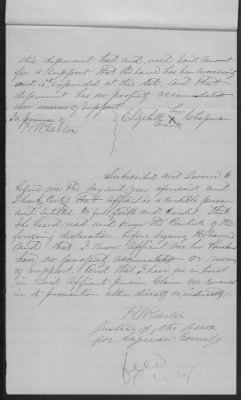 this deponent had and used said amount
for a support that the same has been necessary
and is expended at this date and that
deponent has no property accumulated
nor means of support
In presence of Elizabeth X Chapman
Subscribed and Sworn to
before me the day and year aforesaid and
I hereby certify that affiant is a credible person
and entitled to full faith and credit, that
she heard read and knew the contents of the
foregoing declaration before signing the same
and that I know affiant nor her husband
have no property accumulated or means
of support. And that I have no interest
in said affiants pension claim nor concern
in its prosecution either directly or indirectly
Justice of the peace
for Saginaw County